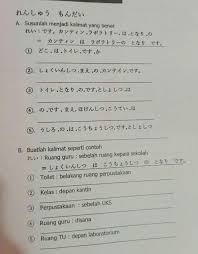 れんしゅう もんだい
A. Susunlah menjadi kalimat yang benar
れい：です。カンティン、ラボラトリー、は、となり、の
= カンティン は ラボラトリーの となり です。
① どこ、は、トイレ、です、か
② しょくいんしつ、まえ、の、カンティン、です。
③ トイレ、となり、の、です、としょしつ、は
④ は、です、まえ、ほけんしつ、こうてい、は
⑤ うしろ、の、は、こうちょうしつ、です、としょしつ
B. Buatlah kalimat seperti contoh
れい：Ruang guru : sebelah ruang kepala sekolah
= しょくいんしつ は こうちょうしつ の となり です。
① Toilet : belakang ruang perpustakaan
② Kelas : depan kantin
③ Perpustakaan : sebelah UKS
④ Ruang guru : disana
⑤ Ruang TU : depan laboratorium